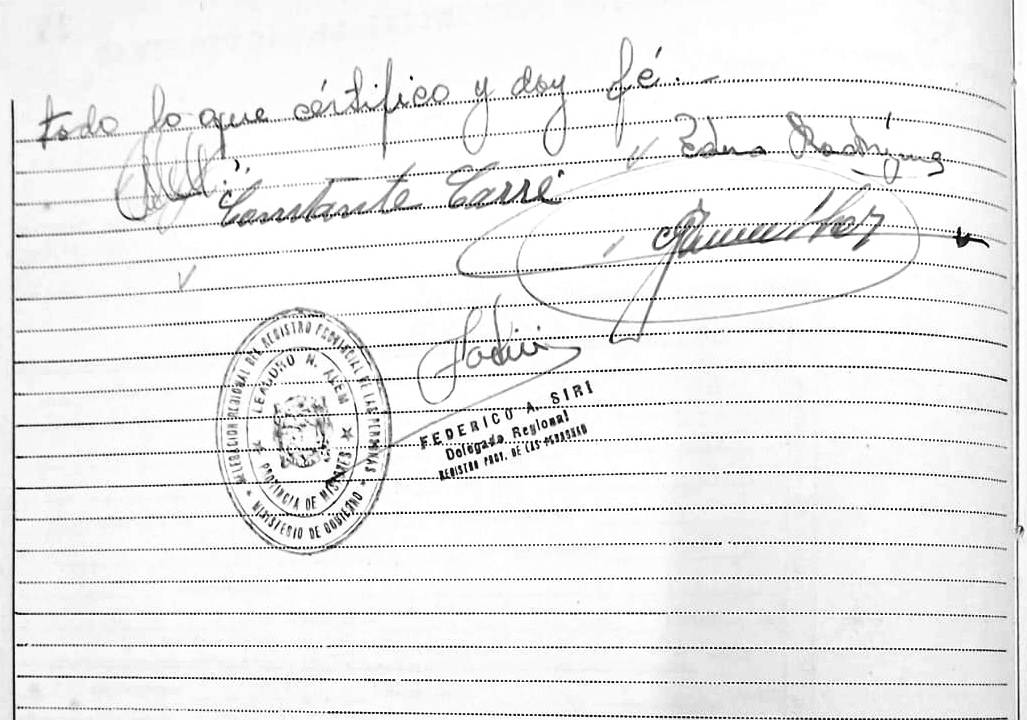 todo lo que cértifico y doy fé.-
Edna Rodríguez
Constante Carré
DELEGACION REGIONAL DEL REGISTRO PROVINCIAL DE LAS PERSONAS
LEANDRO N. ALEM
PROVINCIA DE MISIONES
MINISTERIO DE GOBIERNO
FEDERICO A. SIRI
Delegado Regional
REGISTRO PROV. DE LAS PERSONAS